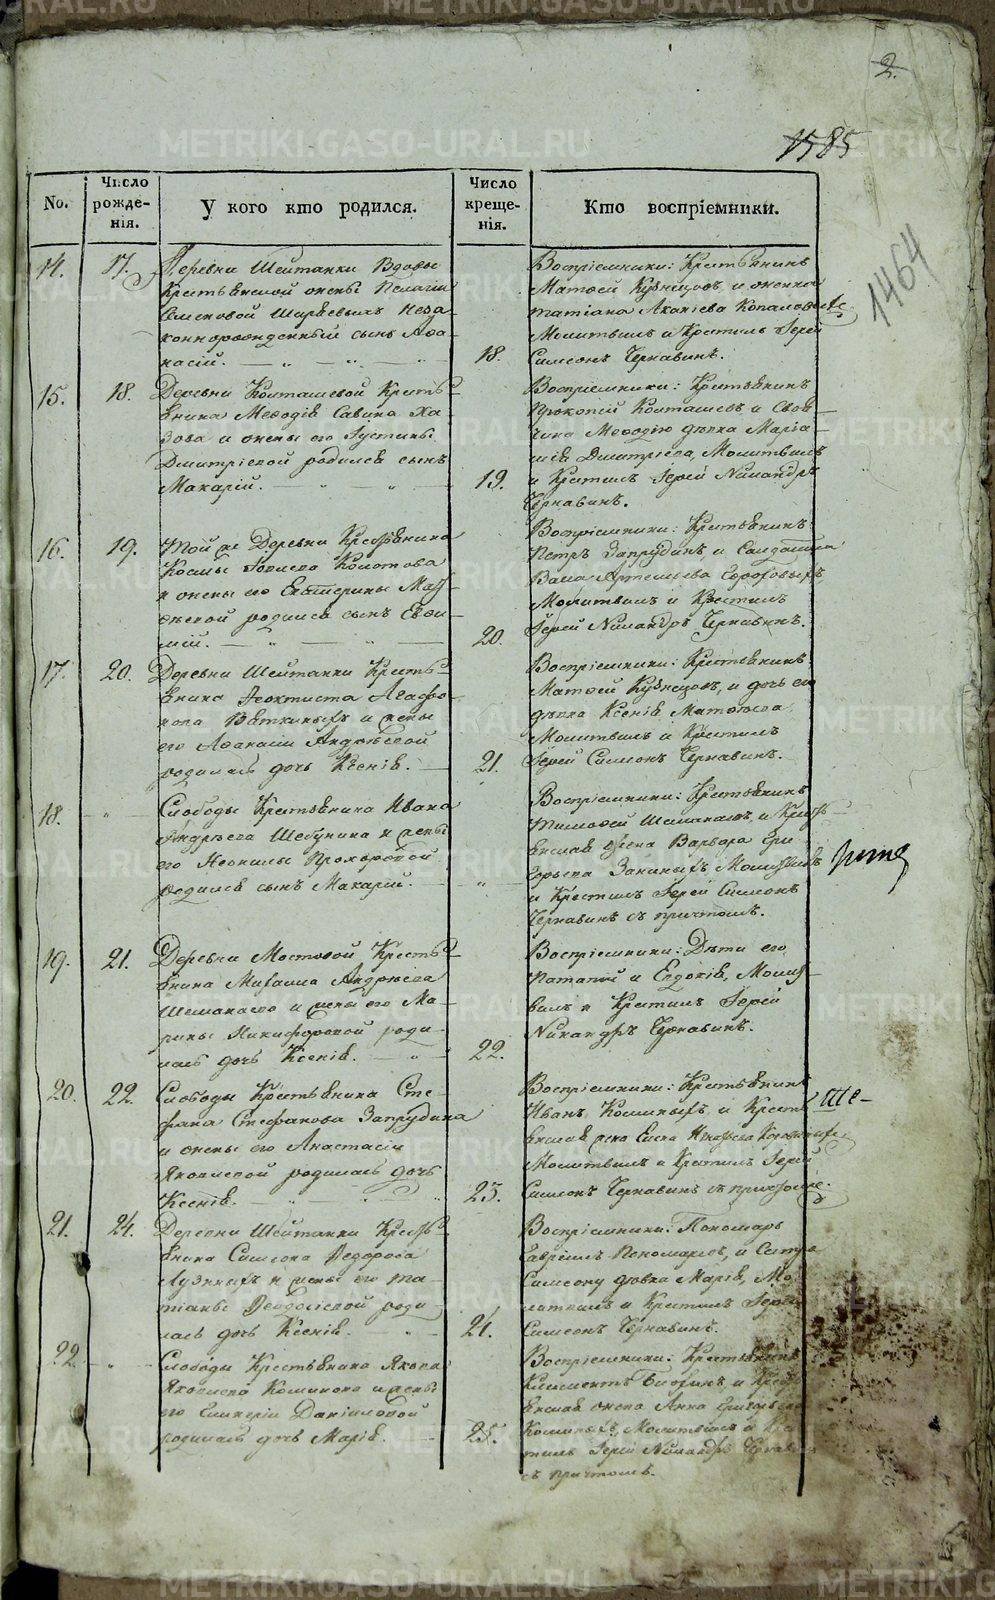 2.
1585
1464
No.
Число рожде-нія.
У кого кто родился.
Число креще-нія.
Кто воспріемники.
14.
17.
Деревни Шейтанки Вдовы
Крестьянской жены Пелагіи
Семеновой Ширяевыхъ неза
коннорожденный сынъ Афа
насій.
18.
Воспріемники: Крестьянинъ
Матфей Кузнецовъ, и женка
Татіана Акакіева
Молитвилъ и Крестилъ Іерей
Симеонъ Чернавинъ.
15.
18.
Деревни Колташевой Кресть
янина Мефодія Савина Ха
зова и жены его Іустины
Дмитріевой родился сынъ
Макарій.
19.
Воспріемники: Крестьянинъ
Прокопій Колташевъ и Своя
чина Мефодію дѣвка Маріа
Дмитріева, Молитвилъ
и Крестилъ Іерей Никандръ
Чернавинъ.
16.
19.
Той же Деревни Крестьянина
Космы Іовлева Колотова
и жены его Екатерины Мат
родился сынъ Евѳи
мій.
20.
Воспріемники: Крестьянинъ
Петръ Запрудинъ, и Солдатка
Васса Артемьева
Молитвилъ и Крестилъ
Іерей Никандръ Чернавинъ.
17.
20.
Деревни Шейтанки Кресть
янина Феоктиста Агафо
нова Вяткиныхъ и жены
его Афанасіи Андреевой
родилась дочь Ксенія.
21.
Воспріемники: Крестьянинъ
Матфей Кузнецовъ, и дочь его
дѣвка Ксенія Матфеева
Молитвилъ и Крестилъ
Іерей Симеонъ Чернавинъ.
18.
"
Слободы Крестьянина Ивана
Андреева Шебунина и жены
его Неонилы Прохоровой
родился сынъ Макарій.
"
Воспріемники: Крестьянинъ
Тимофей Шемякинъ, и Кресть
янская жена Варвара Гри
горьева Молитвилъ
и Крестилъ Іерей Симеонъ
Чернавинъ съ причтомъ.
19.
21.
Деревни Мостовой Кресть
янина Михаила Андреева
Шемякина и жены его Ма
рины Никифоровой роди
лась дочь Ксенія.
22.
Воспріемники: Дѣти его
Потапій и Евдокія, Молит
вилъ и Крестилъ Іерей
Никандръ Чернавинъ.
20.
22.
Слободы Крестьянина Сте
фана Стефанова Запрудина
и жены его Анастасіи
Яковлевой родилась дочь
Ксенія.
23.
Воспріемники: Крестьянинъ
Иванъ Коминыхъ, и Кресть
янская жена Елена
Молитвилъ и Крестилъ Іерей
Симеонъ Чернавинъ съ причтомъ.
Ше-
21.
24.
Деревни Шейтанки Кресть
янина Симеона Федорова
Лузиныхъ и жены его Та
тіаны Феодосіевой роди
лась дочь Ксенія.
24.
Воспріемники: Пономарь
Гавріилъ Пономаревъ, и Сестра
Симеону дѣвка Марія, Мо
литвилъ и Крестилъ Іерей
Симеонъ Чернавинъ.
22.
"
Слободы Крестьянина Якова
Яковлева Коминова и жены
его Гликеріи Даніиловой
родилась дочь Марія.
25.
Воспріемники: Крестьянинъ
Климентъ и Кресть
янская жена Анна Григорьева
Коминыхъ, Молитвилъ и Кре
стилъ Іерей Никандръ Чернавинъ
съ причтомъ.
METRIKI.GASO-URAL.RU